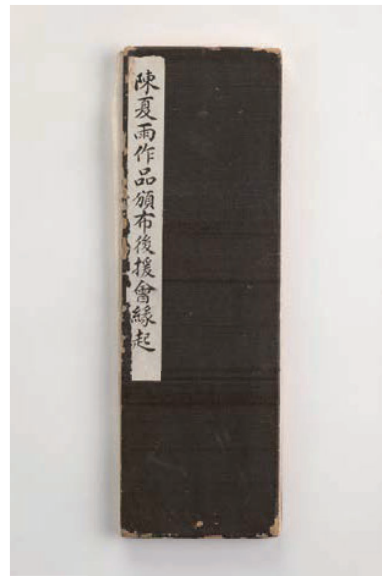 陳夏雨作品頒布後援會緣起